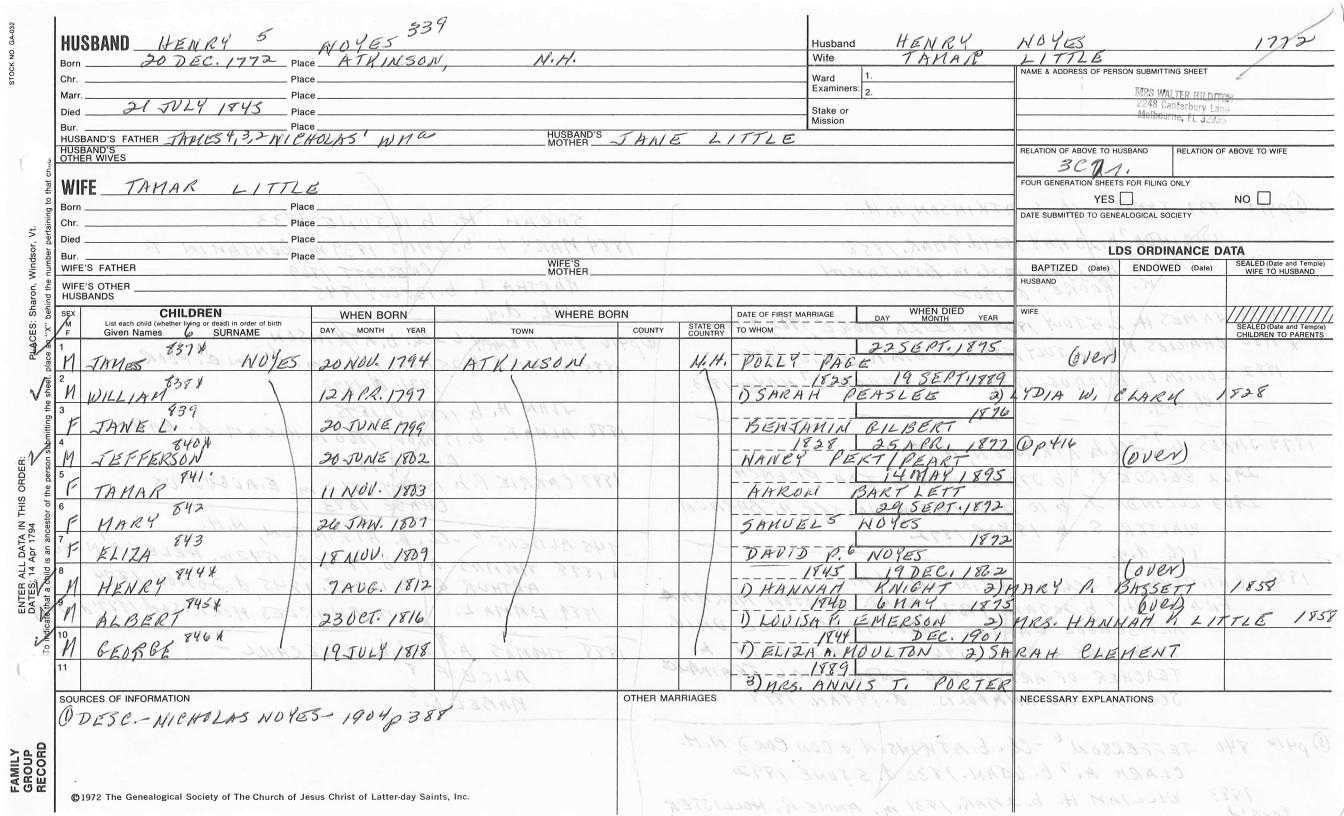 STOCK NO. GA-032
HUSBAND HENRY 5 NOYES 339
Born 20 DEC. 1772 Place ATKINSON, N.H.
Chr. Place
Marr. Place
Died 21 JULY 1843 Place
Bur. Place
HUSBAND'S FATHER JAMES 4,3,2 NICHOLAS' WMa HUSBAND'S MOTHER JANE LITTLE
HUSBAND'S OTHER WIVES
Husband HENRY NOYES 1772
Wife TAMAR LITTLE
Ward Examiners: 1.
2.
Stake or Mission
NAME & ADDRESS OF PERSON SUBMITTING SHEET
MRS WALTER
2248 Canterbury Lane
Melbourne, FL
RELATION OF ABOVE TO HUSBAND RELATION OF ABOVE TO WIFE
FOUR GENERATION SHEETS FOR FILING ONLY
YES NO
DATE SUBMITTED TO GENEALOGICAL SOCIETY
WIFE TAMAR LITTLE
Born Place
Chr. Place
Died Place
Bur. Place
WIFE'S FATHER WIFE'S MOTHER
WIFE'S OTHER HUSBANDS
LDS ORDINANCE DATA
BAPTIZED (Date) ENDOWED (Date) SEALED (Date and Temple) WIFE TO HUSBAND
HUSBAND
WIFE
SEALED (Date and Temple) CHILDREN TO PARENTS
SEX M F CHILDREN List each child (whether living or dead) in order of birth Given Names 6 SURNAME
WHEN BORN DAY MONTH YEAR
WHERE BORN TOWN COUNTY STATE OR COUNTRY
DATE OF FIRST MARRIAGE TO WHOM
WHEN DIED DAY MONTH YEAR
1 M JAMES 837* NOYES 20 NOV. 1794 ATKINSON N.H. 22 SEPT. 1875 POLLY PAGE (over)
2 M WILLIAM 838* 12 APR. 1797 1825 19 SEPT. 1889 1) SARAH PEASLEE 2) LYDIA W. CLARK 1828
3 F JANE L. 839 20 JUNE 1799 1876 BENJAMIN GILBERT
4 M JEFFERSON 840* 20 JUNE 1802 1828 25 APR. 1877 NANCY PERT/PEART ① p416 (over)
5 F TAMAR 841 11 NOV. 1803 14 MAY 1895 AARON BARTLETT
6 F MARY 842 26 JAN. 1807 29 SEPT. 1892 SAMUEL 5 NOYES
7 F ELIZA 843 18 NOV. 1809 1872 DAVID P. 6 NOYES
8 M HENRY 844* 7 AUG. 1812 1845 19 DEC. 1862 1) HANNAH KNIGHT 2) MARY P. BASSETT 1858 (over)
9 M ALBERT 845* 23 OCT. 1816 1840 6 MAY 1875 1) LOUISA P. EMERSON 2) MRS. HANNAH K LITTLE 1858 (over)
10 M GEORGE 846* 19 JULY 1818 1844 DEC. 1901 1) ELIZA A. MOULTON 2) SARAH CLEMENT
11 1889 3) MRS. ANNIS T. PORTER
SOURCES OF INFORMATION
① DESC.- NICHOLAS NOYES- 1904 p388
OTHER MARRIAGES
NECESSARY EXPLANATIONS
©1972 The Genealogical Society of The Church of Jesus Christ of Latter-day Saints, Inc.
FAMILY GROUP RECORD
ENTER ALL DATA IN THIS ORDER:
DATES: 14 Apr 1794
PLACES: Sharon, Windsor, Vt.
To indicate that a child is an ancestor of the person submitting the sheet, place an "X" behind the number pertaining to that